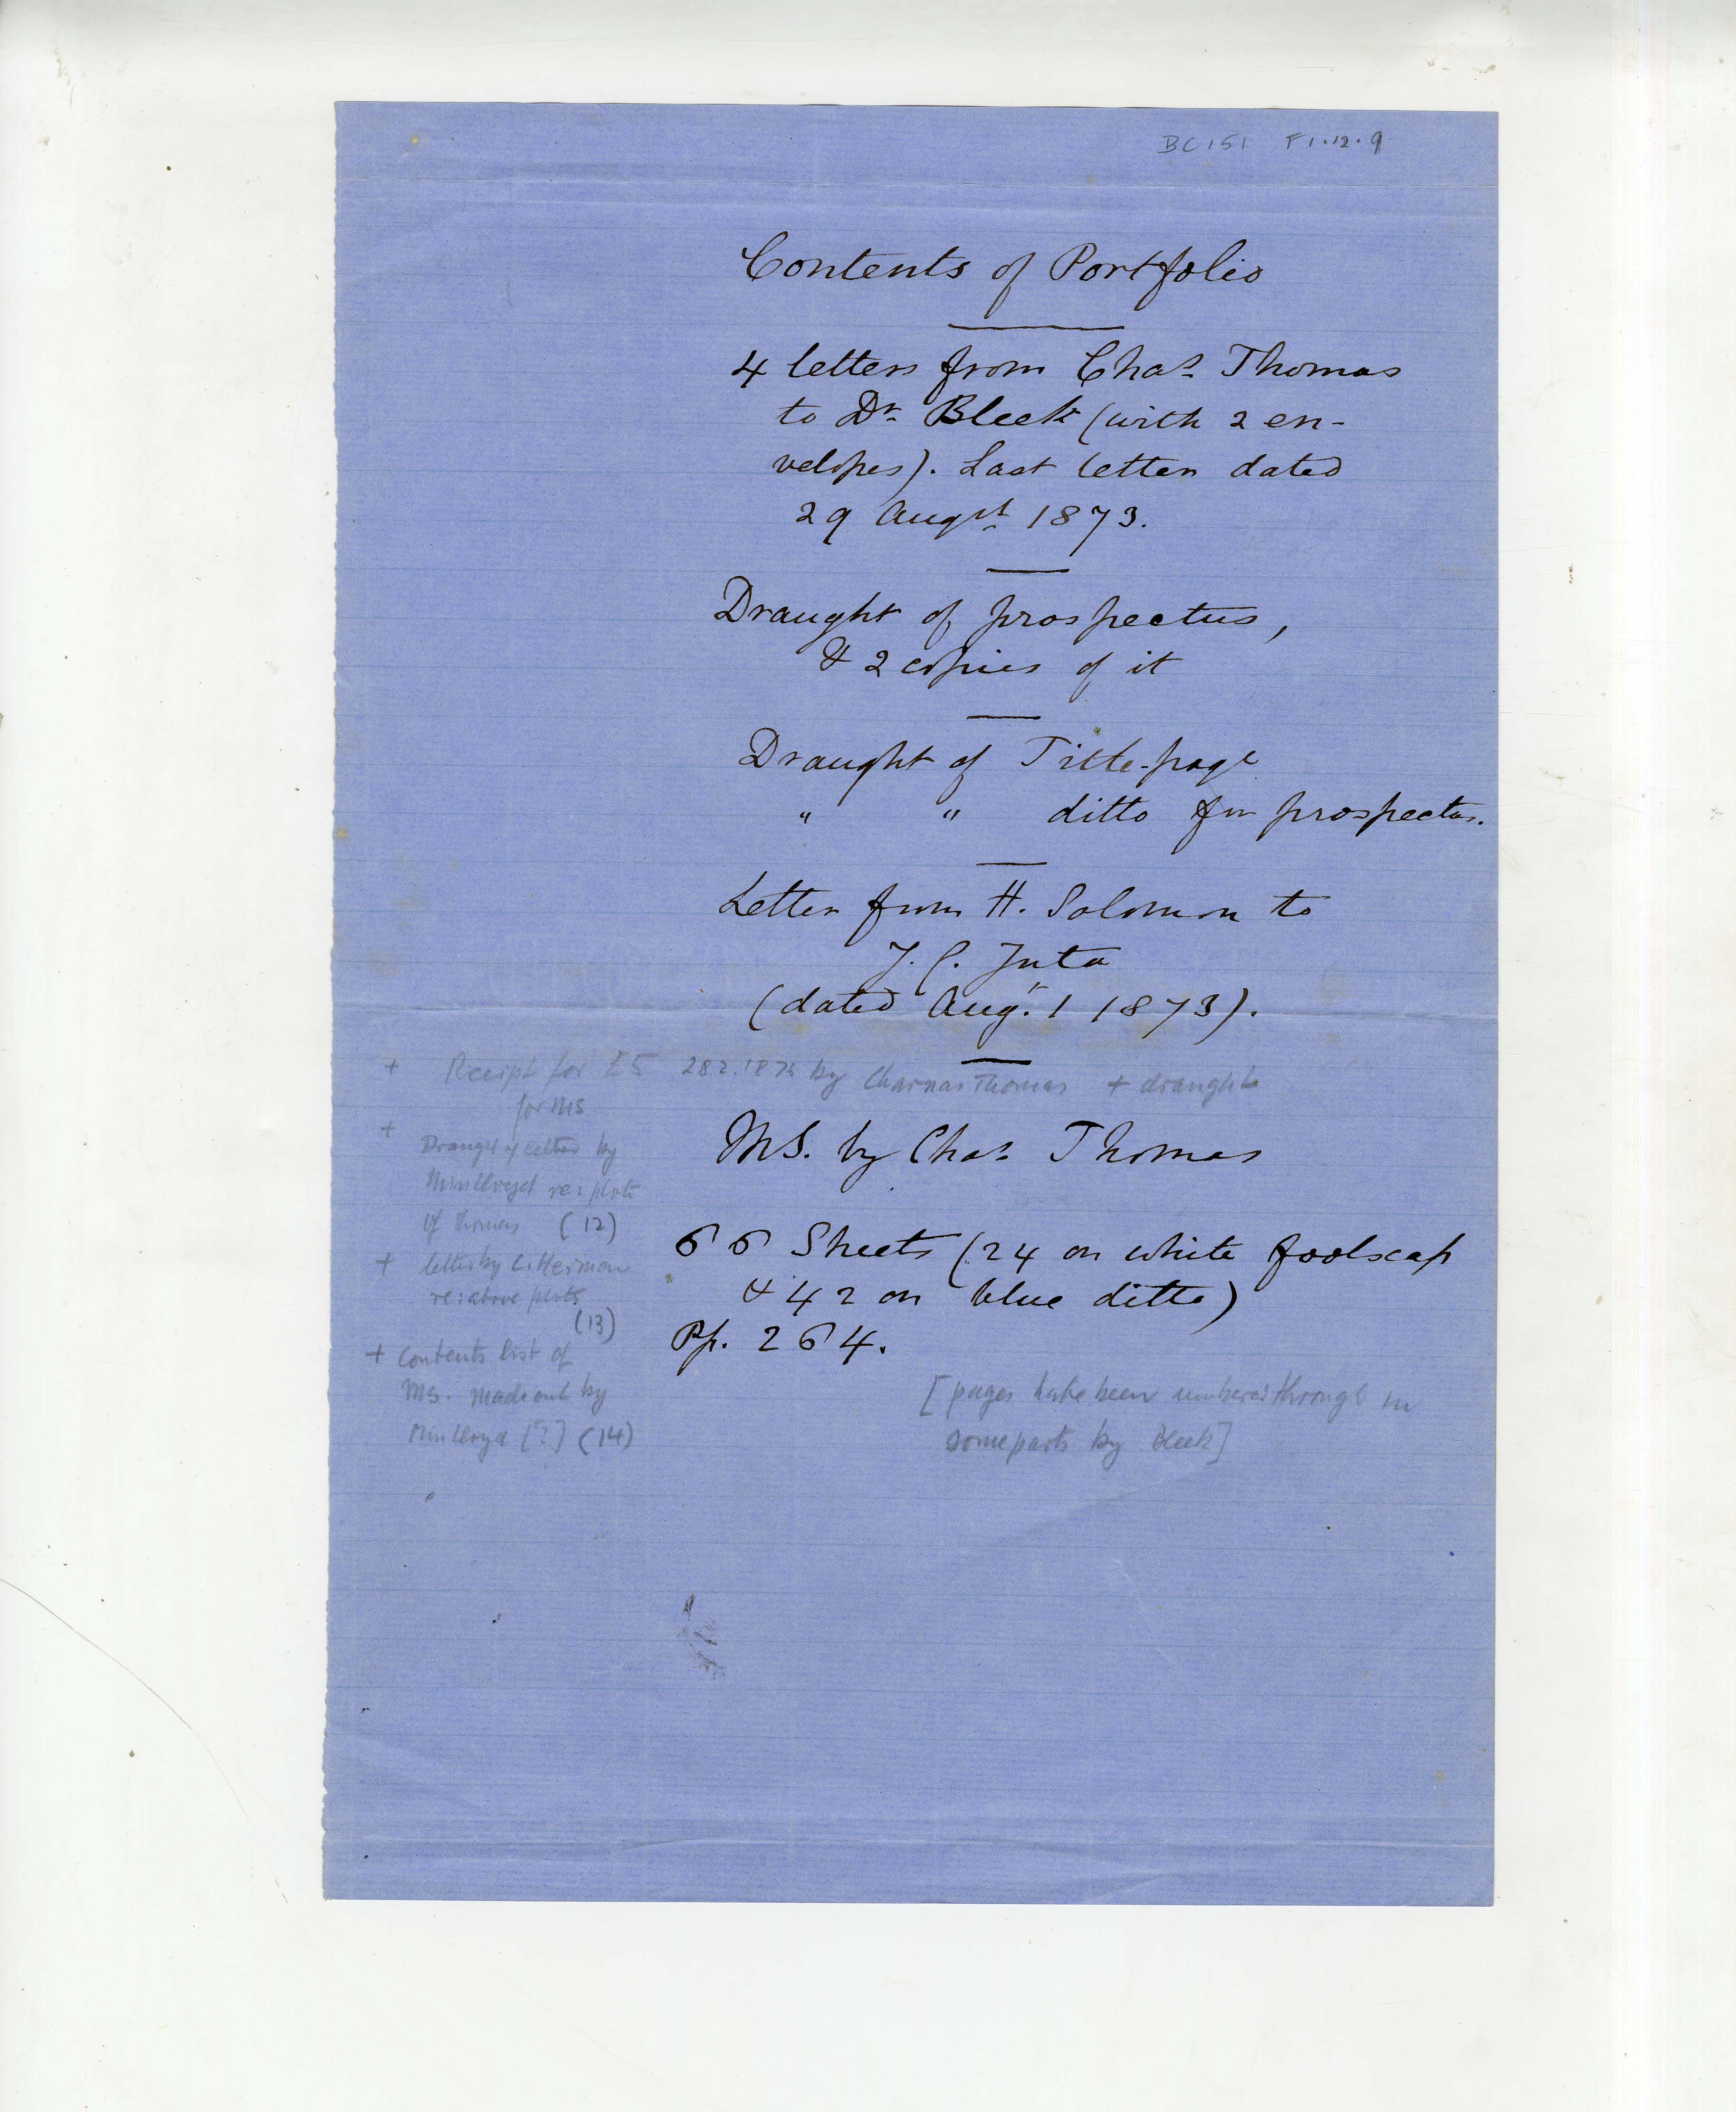 BC151 F1.12.9
Contents of Portfolio
4 letters from Chas. Thomas
to Dr. Bleek (with 2 en-
velopes). Last letter dated
29 Augst. 1873.
Draught of prospectus,
& 2 copies of it
Draught of Title-page
" " ditto for prospectus.
Letter from H. Solomon to
J. C. Juta
(dated Aug. 1 1873).
+ Receipt for £5 by Thomas + draught
for MS
MS. by Chas. Thomas
+ Draught of letter by
Miss Lloyd re: plots
of Thomas (12)
66 Sheets (24 on white foolscap
& 42 on blue ditto)
Pp. 264.
+ letter by
re: above plots
(13)
+ Contents list of
MS. made out by
Miss Lloyd [?] (14)
[pages have been numbered through in
some parts by Bleek]